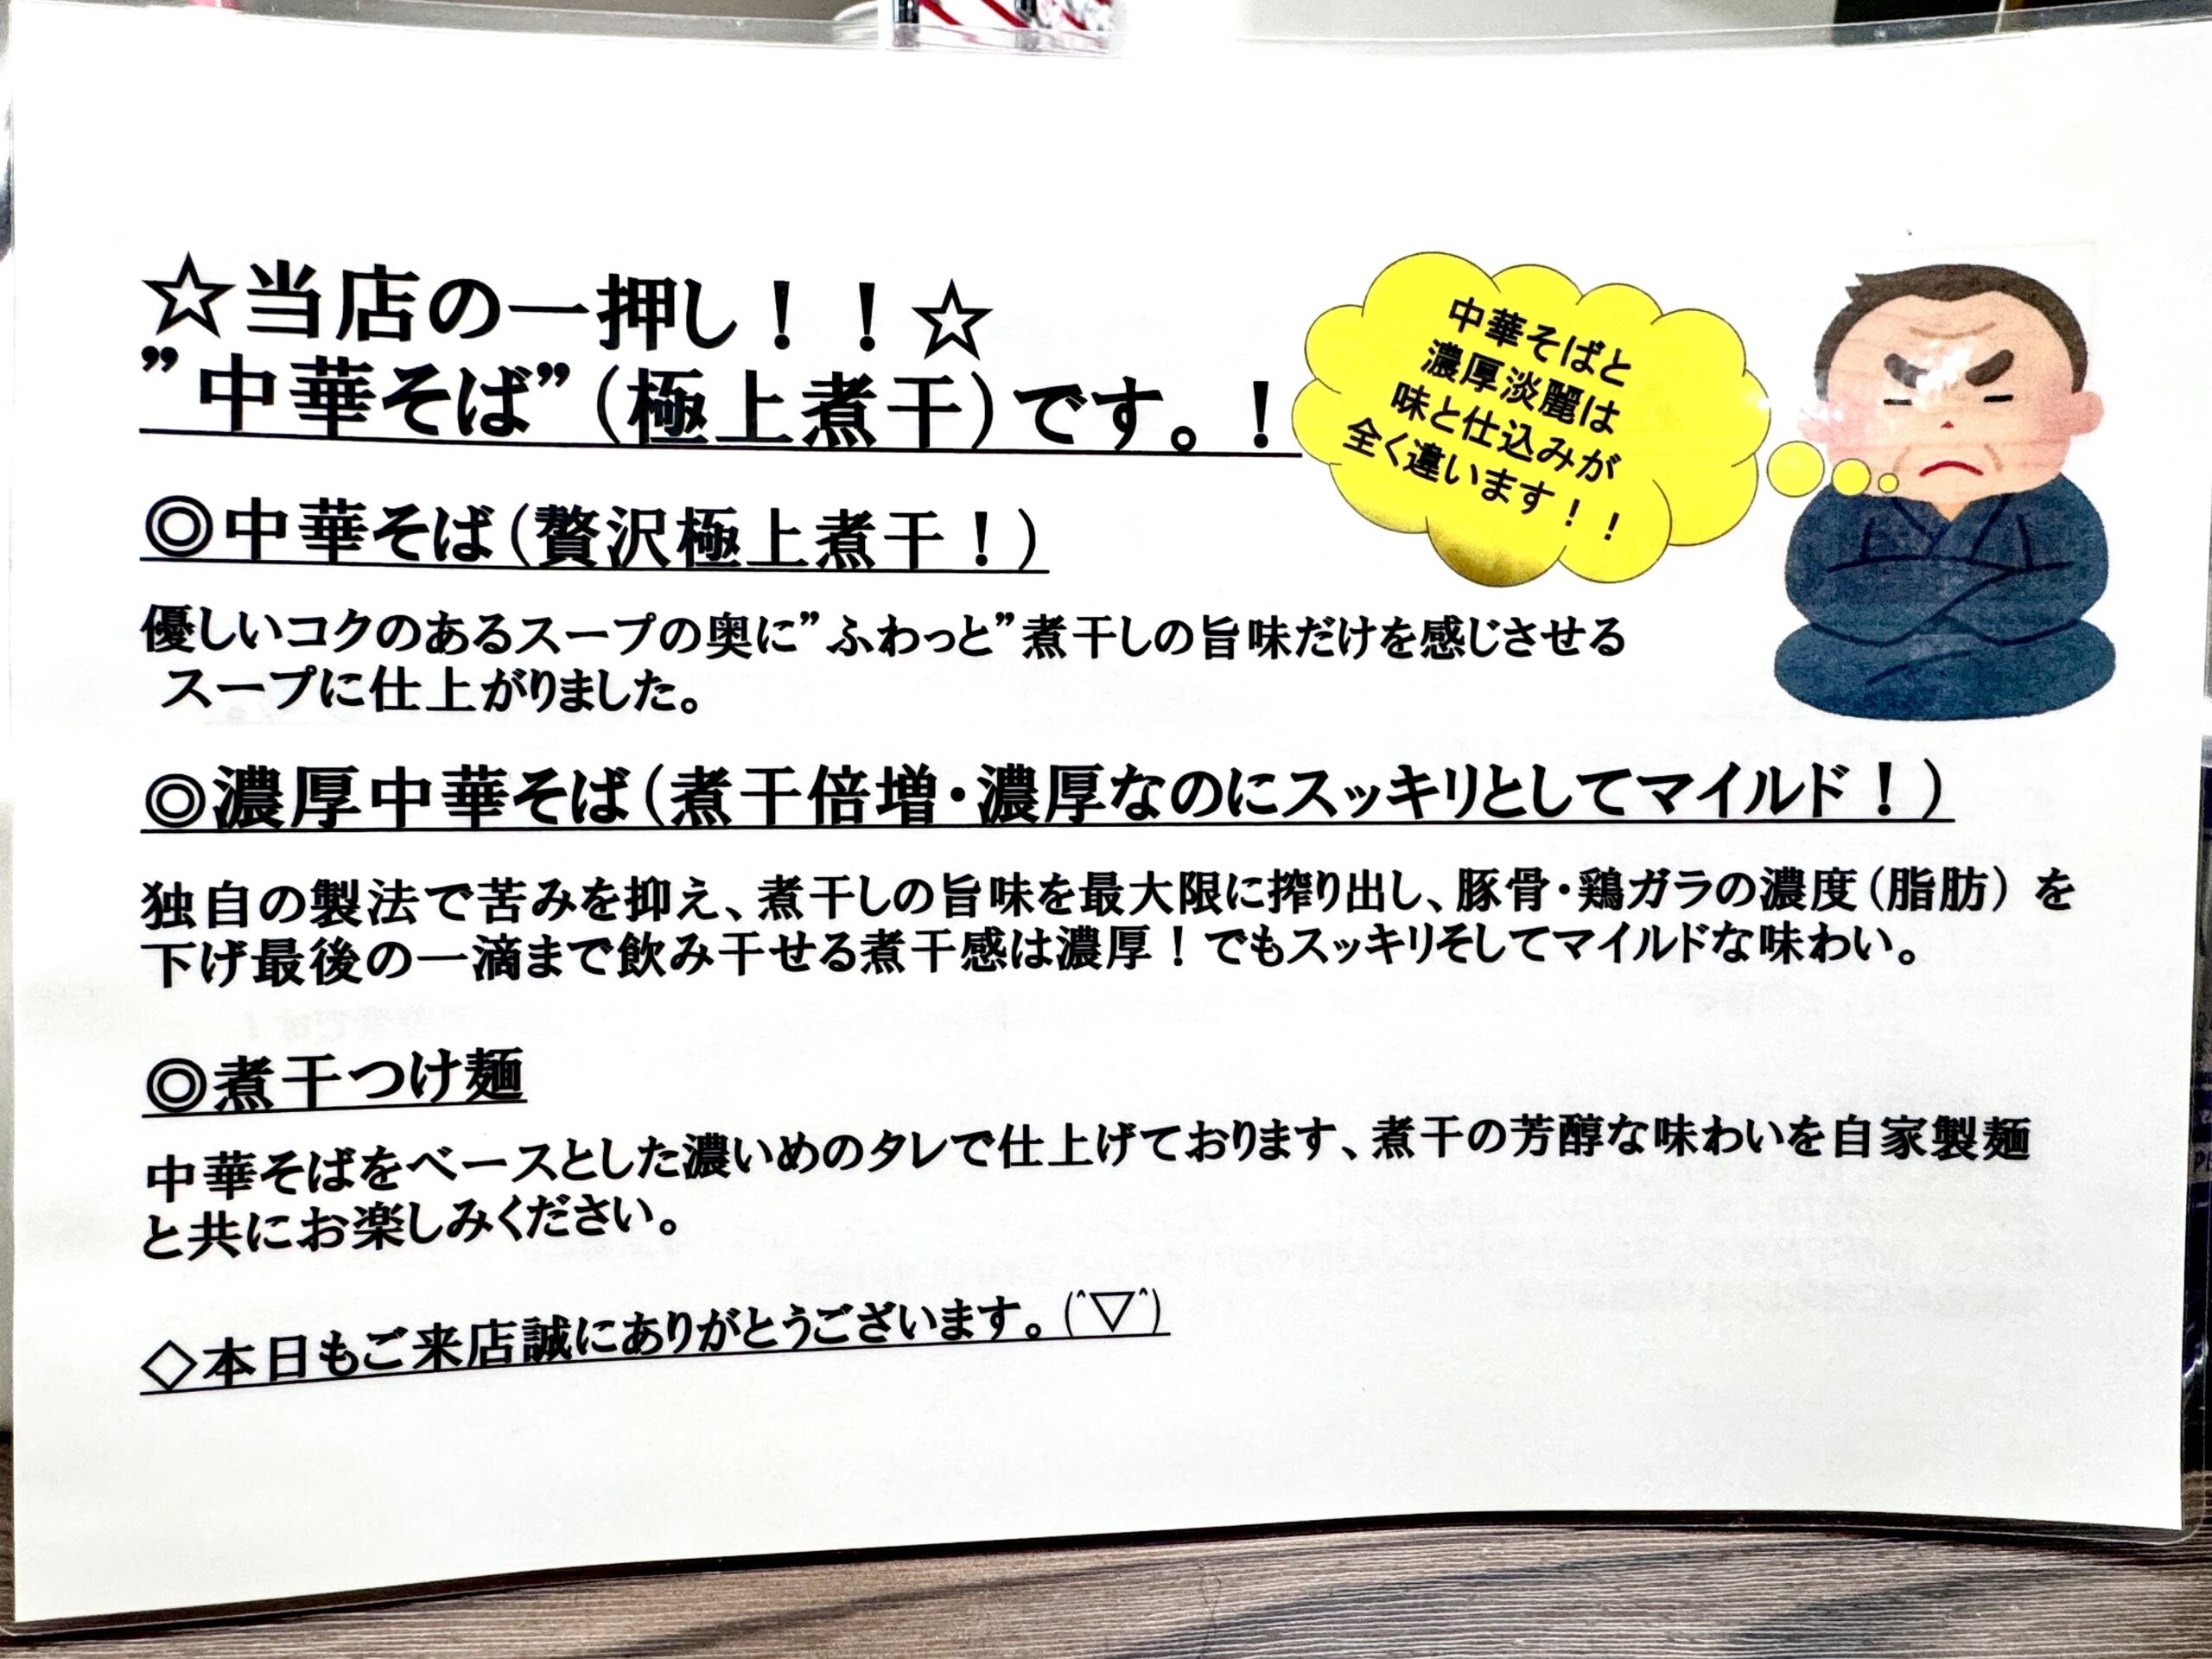 ☆当店の一押し！！☆
”中華そば”（極上煮干）です。！
中華そばと
濃厚淡麗は
味と仕込みが
全く違います！！
◎中華そば（贅沢極上煮干！）
優しいコクのあるスープの奥に”ふわっと”煮干しの旨味だけを感じさせる
スープに仕上がりました。
◎濃厚中華そば（煮干倍増・濃厚なのにスッキリとしてマイルド！）
独自の製法で苦みを抑え、煮干しの旨味を最大限に搾り出し、豚骨・鶏ガラの濃度（脂肪）を
下げ最後の一滴まで飲み干せる煮干感は濃厚！でもスッキリそしてマイルドな味わい。
◎煮干つけ麺
中華そばをベースとした濃いめのタレで仕上げております、煮干の芳醇な味わいを自家製麺
と共にお楽しみください。
◇本日もご来店誠にありがとうございます。(^▽^)